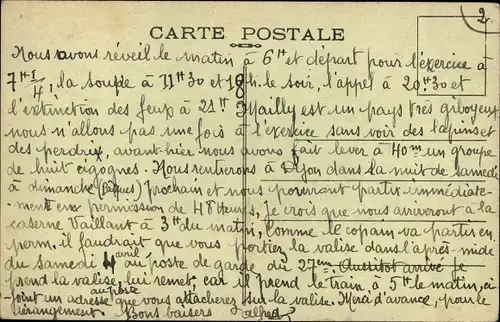 2
CARTE POSTALE
Nous avons réveil le matin à 6H et départ pour l'exercice à
7H 1/4, la soupe à 11H30 et 18h. le soir, l'appel à 20H30 et
l'extinction des feux à 21H Mailly est un pays très giboyeux
nous n'allons pas une fois à l'exercice sans voir des lapins et
des perdrix, avant-hier nous avons fait lever à 40m un groupe
de huit cigognes. Nous rentrerons à Dijon dans la nuit de samedi
à dimanche (Pâques) prochain et nous pourront partir immédiate-
ment en permission de 48 heures, je crois que nous arriveront à la
caserne Vaillant à 3H du matin, comme le copain va partir en
perm. il faudrait que vous portiez la valise dans l'après-midi
du samedi 4 avril au poste de garde du 27me. Aussitot arrivé je
prend la valise, lui remet, car il prend le train, à 5H le matin, ci
joint un adresse au poste que vous attacherez sur la valise. Merci d'avance, pour le
dérangement. Bons baisers Alfred